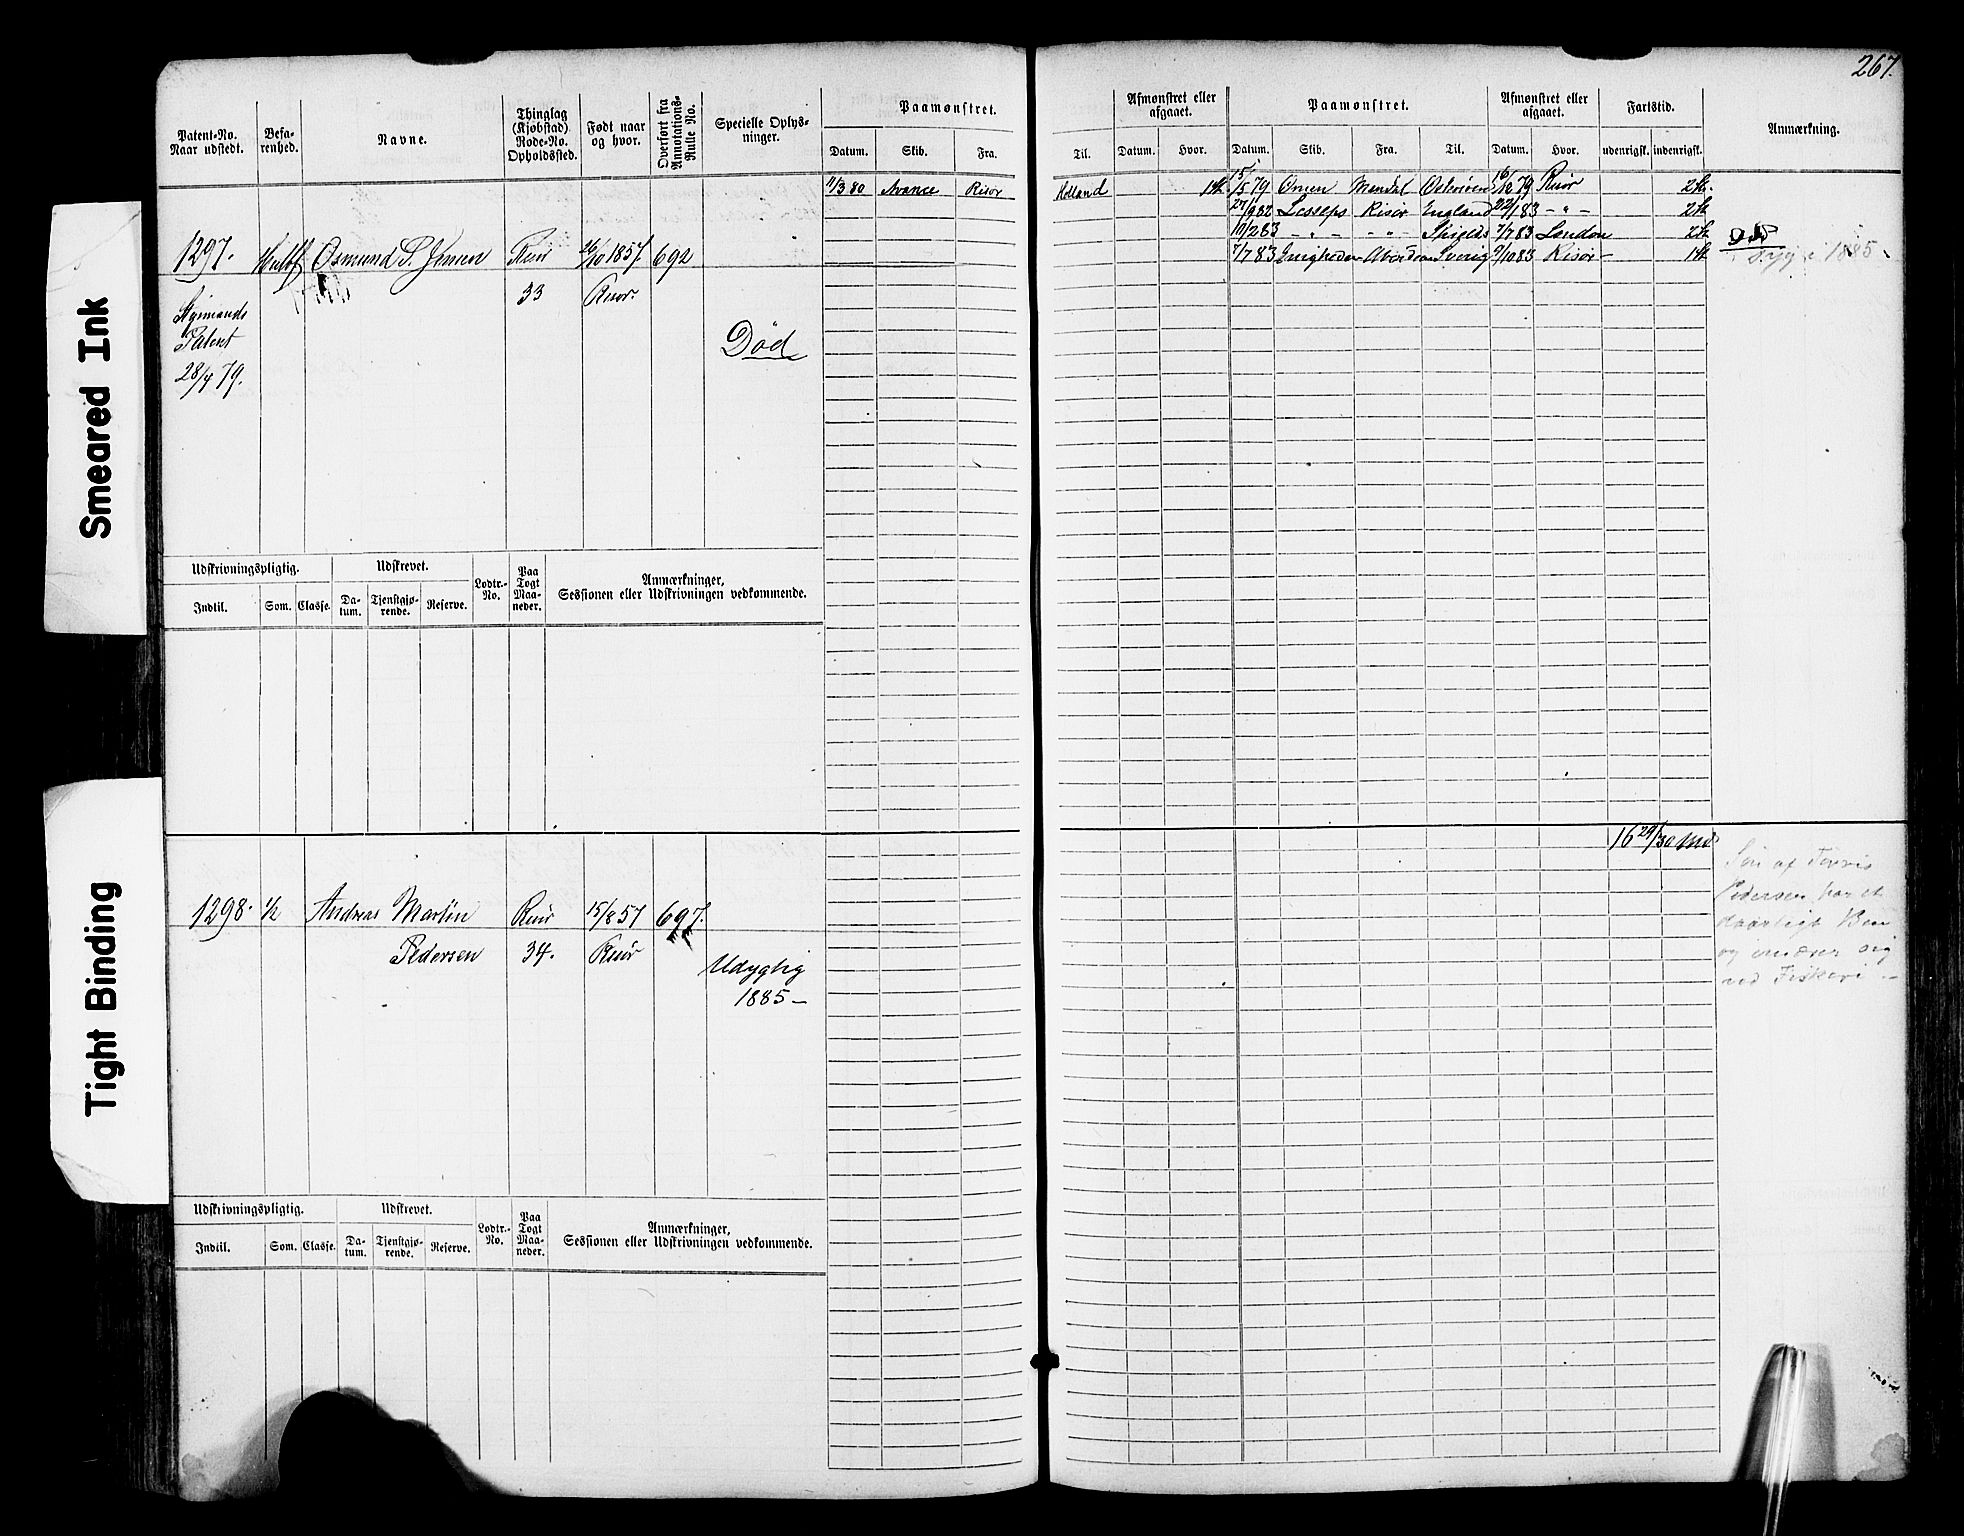 267.
Smeared Ink
Tight Binding
Patent-No. Naar udstedt.
Befarenhed.
Navne.
Thinglag (Kjøbstad) Rode-No. Opholdssted.
Født naar og hvor.
Overført fra Annotations-Rulle No.
Specielle Oplysninger.
Paamønstret.
Datum. Skib. Fra. Til.
Afmønstret eller afgaaet.
Datum. Hvor.
Paamønstret.
Datum. Skib. Fra. Til.
Afmønstret eller afgaaet.
Datum. Hvor.
Fartstid.
udenrigsk. indenrigsk.
Anmærkning.
11/3 80 Avance Risør Holland
15/5 79 Mandal 16/12 79 Risør
27/9 82 Lesseps Risør England 22/1 83 - " -
10/2 83 - " - - " - Shields 7/7 83 London
7/7 83 9/10 83 Risør
1297. Osmund S. Jensen Risør 26/10 1857. 692
33 Risør.
Patent
28/4 79.
Død
1885
Udskrivningspligtig. Udskrevet. Lodtr.-No. Paa Togt Maaneder. Anmærkninger, Sessionen eller Udskrivningen vedkommende.
Indtil. Som. Classe. Datum. Tjenstgjørende. Reserve.
16 29/30 Md
1298. 1/2 Andreas Martin Risør 15/8 57 697.
Pedersen 34. Risør
Udygtig
1885 -
Søn af
Pedersen har et
daarligt Ben
og ernærer sig
ved Fiskeri -
Udskrivningspligtig. Udskrevet. Lodtr.-No. Paa Togt Maaneder. Anmærkninger, Sessionen eller Udskrivningen vedkommende.
Indtil. Som. Classe. Datum. Tjenstgjørende. Reserve.